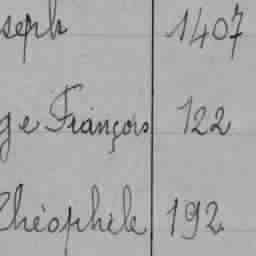 seph 1407
ge François 122
Théophile 192